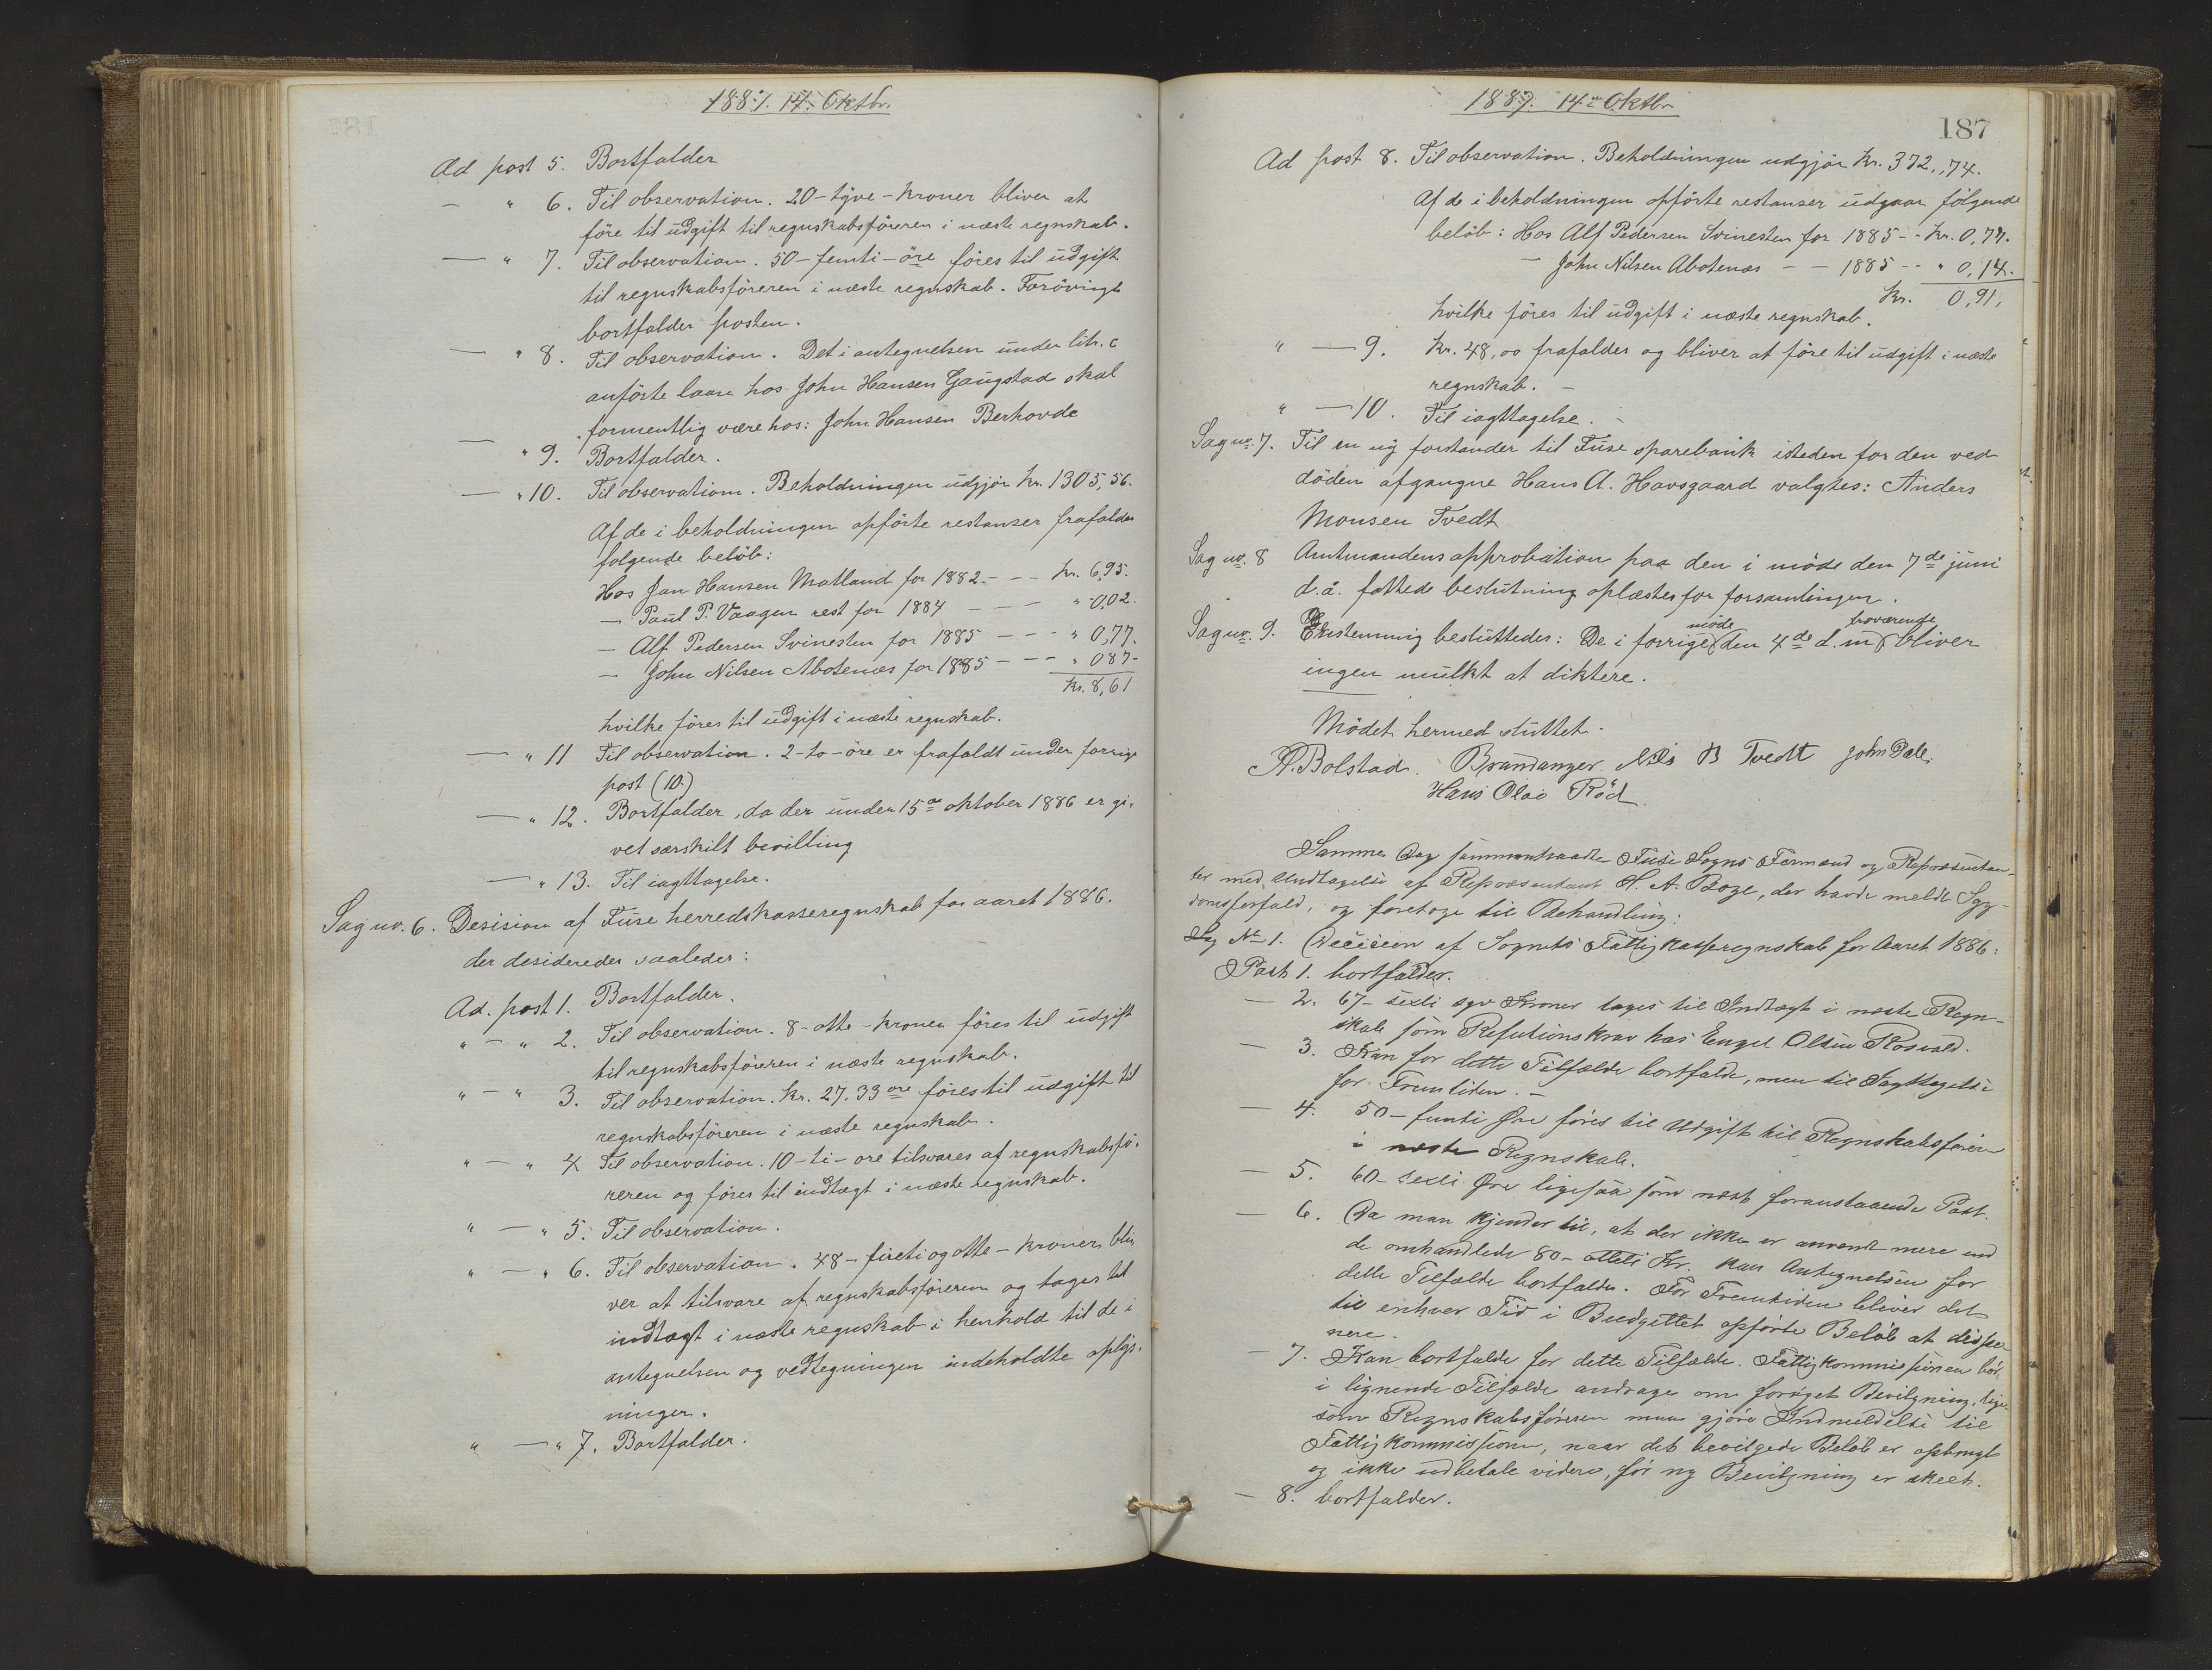 1887. 14. Oktbr.
Ad post 5. Bortfalder
— " 6. Til observation. 20 - tyve - kroner bliver at
före til udgift til regnskabsföreren i næste regnskab.
— " 7. Til observation. 50 - femti - öre föres til udgift
til regnskabsföreren i næste regnskab. Forövrigt
bortfalder posten.
— " 8. Til observation. Det i antegnelsen under litr. c
anförte laan hos John Hansen Gaugstad skal
formentlig være hos: John Hansen Berhovde
— " 9. Bortfalder.
— " 10. Til observation. Beholdningen udgjör Kr. 1305,56.
Af de i beholdningen opförte restanser frafalder
følgende belöb:
Hos Jan Hansen Matland for 1882 - - - Kr. 6,95.
— Paul P. Vaagen rest for 1884 - - - " 0,02.
— Alf Pedersen Svinesten for 1885 - - - " 0,77.
— John Nilsen Abotenæs for 1885 - - - " 087.
Kr. 8,61
hvilke föres til udgift i næste regnskab.
— " 11 Til observation. 2 - to - öre er frafaldt under forrige
post (10.)
— " 12. Bortfalder, da der under 15de oktober 1886 er gi-
vet særskilt bevilling
— " 13. Til iagttagelse.
Sag no. 6. Desision af Fuse herredskasseregnskab for aaret 1886.
der desideredes saaledes:
Ad. post 1. Bortfalder.
" — " 2. Til observation. 8 - otte - kroner föres til udgift
til regnskabsföreren i næste regnskab.
" — " 3. Til observation. Kr. 27.33 öre föres til udgift til
regnskabsföreren i næste regnskab.
" — " 4 Til observation. 10 - ti - öre tilsvares af regnskabsfö-
reren og föres til indtægt i næste regnskab.
" — " 5. Til observation.
" — " 6. Til observation. 48 - fireti og otte - kroner bli-
ver at tilsvare af regnskabsföreren og tages til
indtægt i næste regnskab i henhold til de i
antegnelsen og vedtegningen indeholdte oplys-
ninger.
" — " 7. Bortfalder.
1887. 14de Oktbr.
187
Ad post 8. Til observation. Beholdningen udgjör Kr. 372,,74.
Af de i beholdningen opförte restanser udgaar fölgende
belöb: Hos Alf Pedersen Svinesten for 1885 - - Kr. 0,77.
— John Nilsen Abotenæs - - 1885 - - " 0,14.
Kr. 0,91,
hvilke föres til udgift i næste regnskab.
" — 9. Kr. 48,00 frafalder og bliver at före til udgift i næste
regnskab. —
" — 10. Til iagttagelse.
Sag no. 7. Til en ny forstander til Fuse sparebank isteden for den ved
döden afgangne Hans A. Havsgaard valgtes: Anders
Monsen Tvedt
Sag no. 8 Amtmandens approbation paa den i möde den 7de juni
d.å. fattede beslutning oplæstes for forsamlingen.
möde fraværende
Sag no. 9. Enstemmig besluttedes: De i forrige den 4de d.m. bliver
ingen mulkt at diktere.
Mödet hermed sluttet.
A. Bolstad. Brandanger. Nils B Tvedt John Dale.
Hans Olai Röd.
Samme Dag sammentraadte Fuse Sogns Formænd og Repræsentan-
ter med Undtagelse af Repræsentant H. A. Boge, der havde meldt Syg-
domsforfald, og foretoges til Behandling:
Sag No 1. Decision af Sognets Fattigkasseregnskab for Aaret 1886:
Post 1. bortfalder.
— 2. 67 - sexti syv Kroner tages til Indtægt i næste Regn-
skab som Refutionskrav hos Engel Olsen Rosvold.
— 3. Kan for dette Tilfælde bortfalde, men til Iagttagelse
for Fremtiden. —
— 4. 50 - femti Øre føres til Udgift til Regnskabsføreren
i næste Regnskab.
— 5. 60 - sexti Øre ligesaa som næst foranstaaende Post.
— 6. Da man kjender til, at der ikke er anvendt mere end
de omhandlede 80 - otteti Kr. kan Antegnelsen for
dette Tilfælde bortfalde. For Fremtiden bliver det
til enhver Tid i Budgettet opførte Beløb at dispo-
nere.
— 7. Kan bortfalde for dette Tilfælde. Fattigkommissionen bør
i lignende Tilfælde andrage om forøget Bevilgning, lige-
som Regnskabsføreren maa gjøre Indmeldelse til
Fattigkommissionen, naar det bevilgede Beløb er opbrugt
og ikke udbetale videre, før ny Bevilgning er skeet.
— 8. bortfalder.